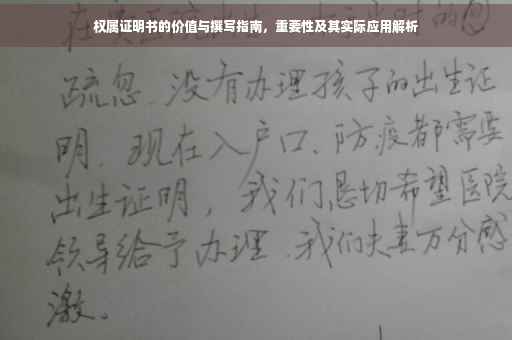 权属证明书的价值与撰写指南，重要性及其实际应用解析
疏忽、没有办理孩子的出生证
明、现在入户口、防疫都需要
出生证明，我们恳切希望医院
领导给予办理、我们夫妻万分感
激。